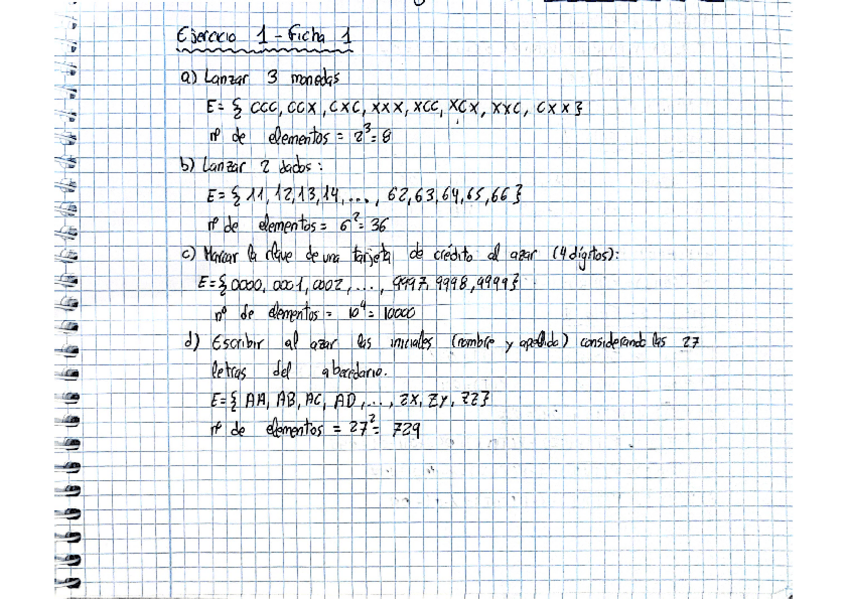 Ejercicio 1 - Ficha 1
a) Lanzar 3 monedas
E = { CCC, CCX, CXC, XXX, XCC, XCX, XXC, CXX }
nº de elementos = 2³ = 8
b) Lanzar 2 dados:
E = { 11, 12, 13, 14, ..., 62, 63, 64, 65, 66 }
nº de elementos = 6² = 36
c) Marcar la clave de una tarjeta de crédito al azar (4 dígitos):
E = { 0000, 0001, 0002, ..., 9997, 9998, 9999 }
nº de elementos = 10⁴ = 10000
d) Escribir al azar las iniciales (nombre y apellido) considerando las 27
letras del abecedario.
E = { AA, AB, AC, AD, ..., ZX, ZY, ZZ }
nº de elementos = 27² = 729